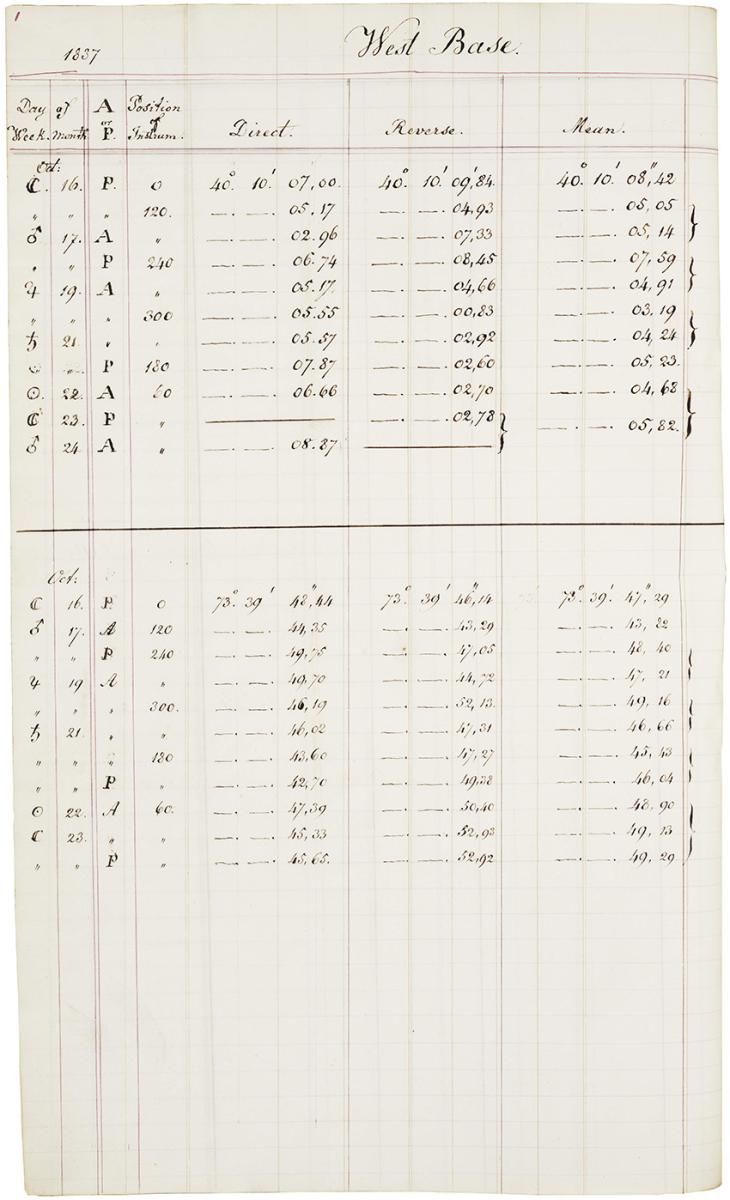 1
1837 West Base.
Day of A Position
or of
Week. Month P. Instrum. Direct. Reverse. Mean.
Oct:
☾. 16. P. 0 40° 10' 07,00. 40° 10' 09,84 40° 10' 08",42
„ „ „ 120. —. —. 05,17 —. —. 04,93 —. —. 05,05
♂ 17. A „ —. —. 02.96 —. —. 07,33 —. —. 05,14
„ „ P 240 —. —. 06.74 —. —. 08,45 —. —. 07,59
♃ 19. A „ —. —. 05.17. —. —. 04,66 —. —. 04,91
„ „ „ 300 —. —. 05.55 —. —. 00,83 —. —. 03,19
♄ 21. „ „ —. —. 05.57 —. —. 02,92 —. —. 04,24
„ P 180 —. —. 07.87 —. —. 02,60 —. —. 05,23.
☉. 22. A 60 —. —. 06.66 —. —. 02,70 —. —. 04,68
☾ 23. P „ ——— —. —. 02,78 —. —. 05,82.
♂ 24 A „ —. —. 08.87 ———
Oct:
☾ 16. P. 0 73° 39' 48",44 73° 39' 46",14 73° 39' 47",29
♂ 17. A 120 —. —. 44,35 —. —. 43,29 —. —. 43,82
„ „ P 240 —. —. 49,75 —. —. 47,05 —. —. 48,40
♃ 19 A „ —. —. 49,70 —. —. 44,72 —. —. 47,21
„ „ „ 300. —. —. 46,19 —. —. 52,13. —. —. 49,16
♄ 21. „ „ —. —. 46,02 —. —. 47,31 —. —. 46,66
„ „ „ 180 —. —. 43,60 —. —. 47,27 —. —. 45,43
„ „ P „ —. —. 42,70 —. —. 49,38 —. —. 46,04
☉ 22. A 60. —. —. 47,39 —. —. 50,40 —. —. 48,90
☾ 23. „ „ —. —. 45,33 —. —. 52,93 —. —. 49,13
„ „ P „ —. —. 45,65. —. —. 52,92 —. —. 49,29